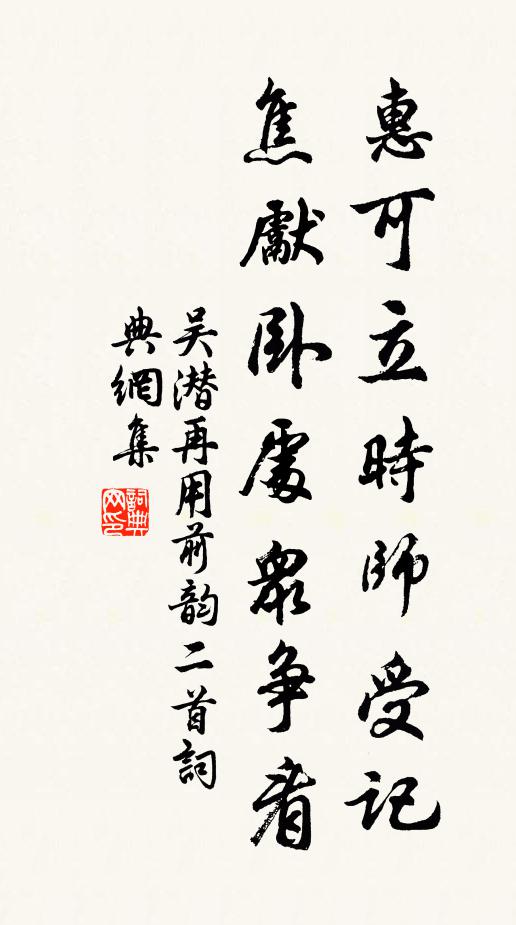 惠可立時師受記
焦獻卧處眾爭看
吴潜再用前韵二首詞
典網集
詞典
网印